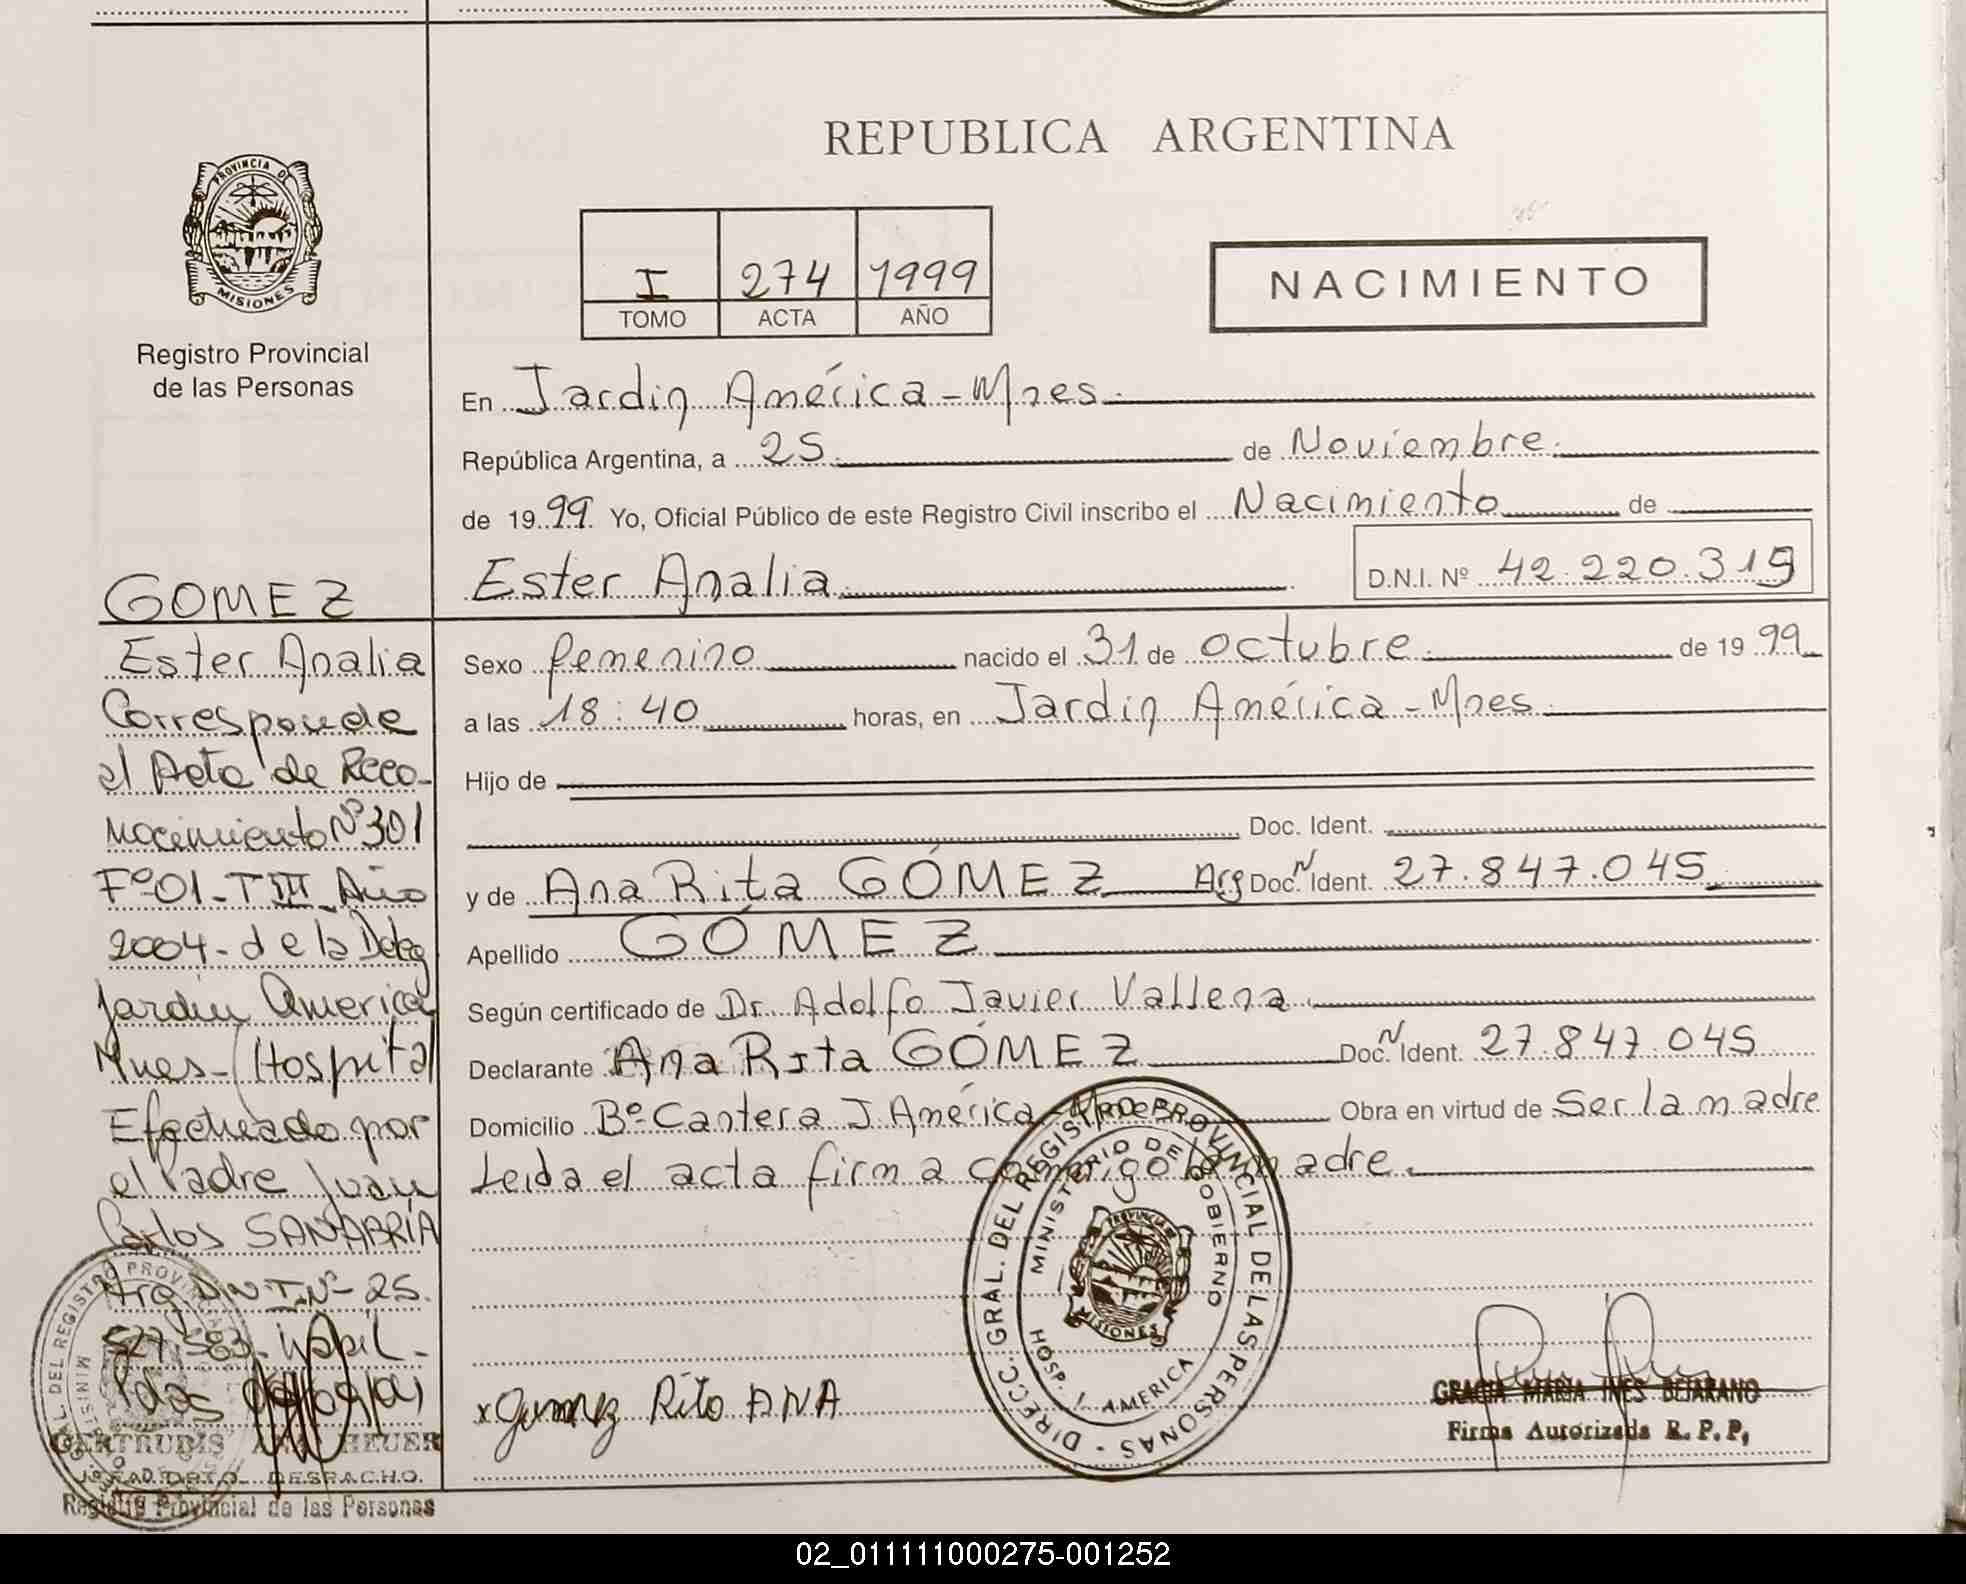 REPUBLICA ARGENTINA
PROVINCIA DE
MISIONES
Registro Provincial
de las Personas
I 274 1999
TOMO ACTA AÑO
NACIMIENTO
En Jardin América - Mnes.
República Argentina, a 25. de Noviembre.
de 1999. Yo, Oficial Público de este Registro Civil inscribo el Nacimiento de
Ester Analia. D.N.I. Nº 42.220.319
Sexo femenino nacido el 31 de octubre. de 1999
a las 18:40 horas, en Jardin América - Mnes.
Hijo de
Doc. Ident.
y de Ana Rita GÓMEZ Arg Doc. N Ident. 27.847.045
Apellido GÓMEZ
Según certificado de Dr. Adolfo Javier Vallena.
Declarante Ana Rita GÓMEZ Doc. N Ident. 27.847.045
Domicilio Bº Cantera J. América - Mnes Obra en virtud de Ser la madre
Leida el acta firma conmigo la madre.
x Gumez Rito ANA
DIRECC. GRAL. DEL REGISTRO PROVINCIAL DE LAS PERSONAS
MINISTERIO DE GOBIERNO
HOSP. J. AMERICA
PROVINCIA DE
MISIONES
GRACIA MARIA INES BEJARANO
Firma Autorizada R. P. P,
GOMEZ
Ester Analia
Corresponde
el Acta de Reco-
nocimiento Nº 301
Fº 01 - T III Año
2004 - de la Deleg
Jardin America
Mnes - (Hospital
Efectuado por
el Padre Juan
Carlos SANABRIA
Arg. D.N.I. Nº 25.
527.583.
GERTRUDIS HEUER
DPTO. DESPACHO.
Registro Provincial de las Personas
02_011111000275-001252